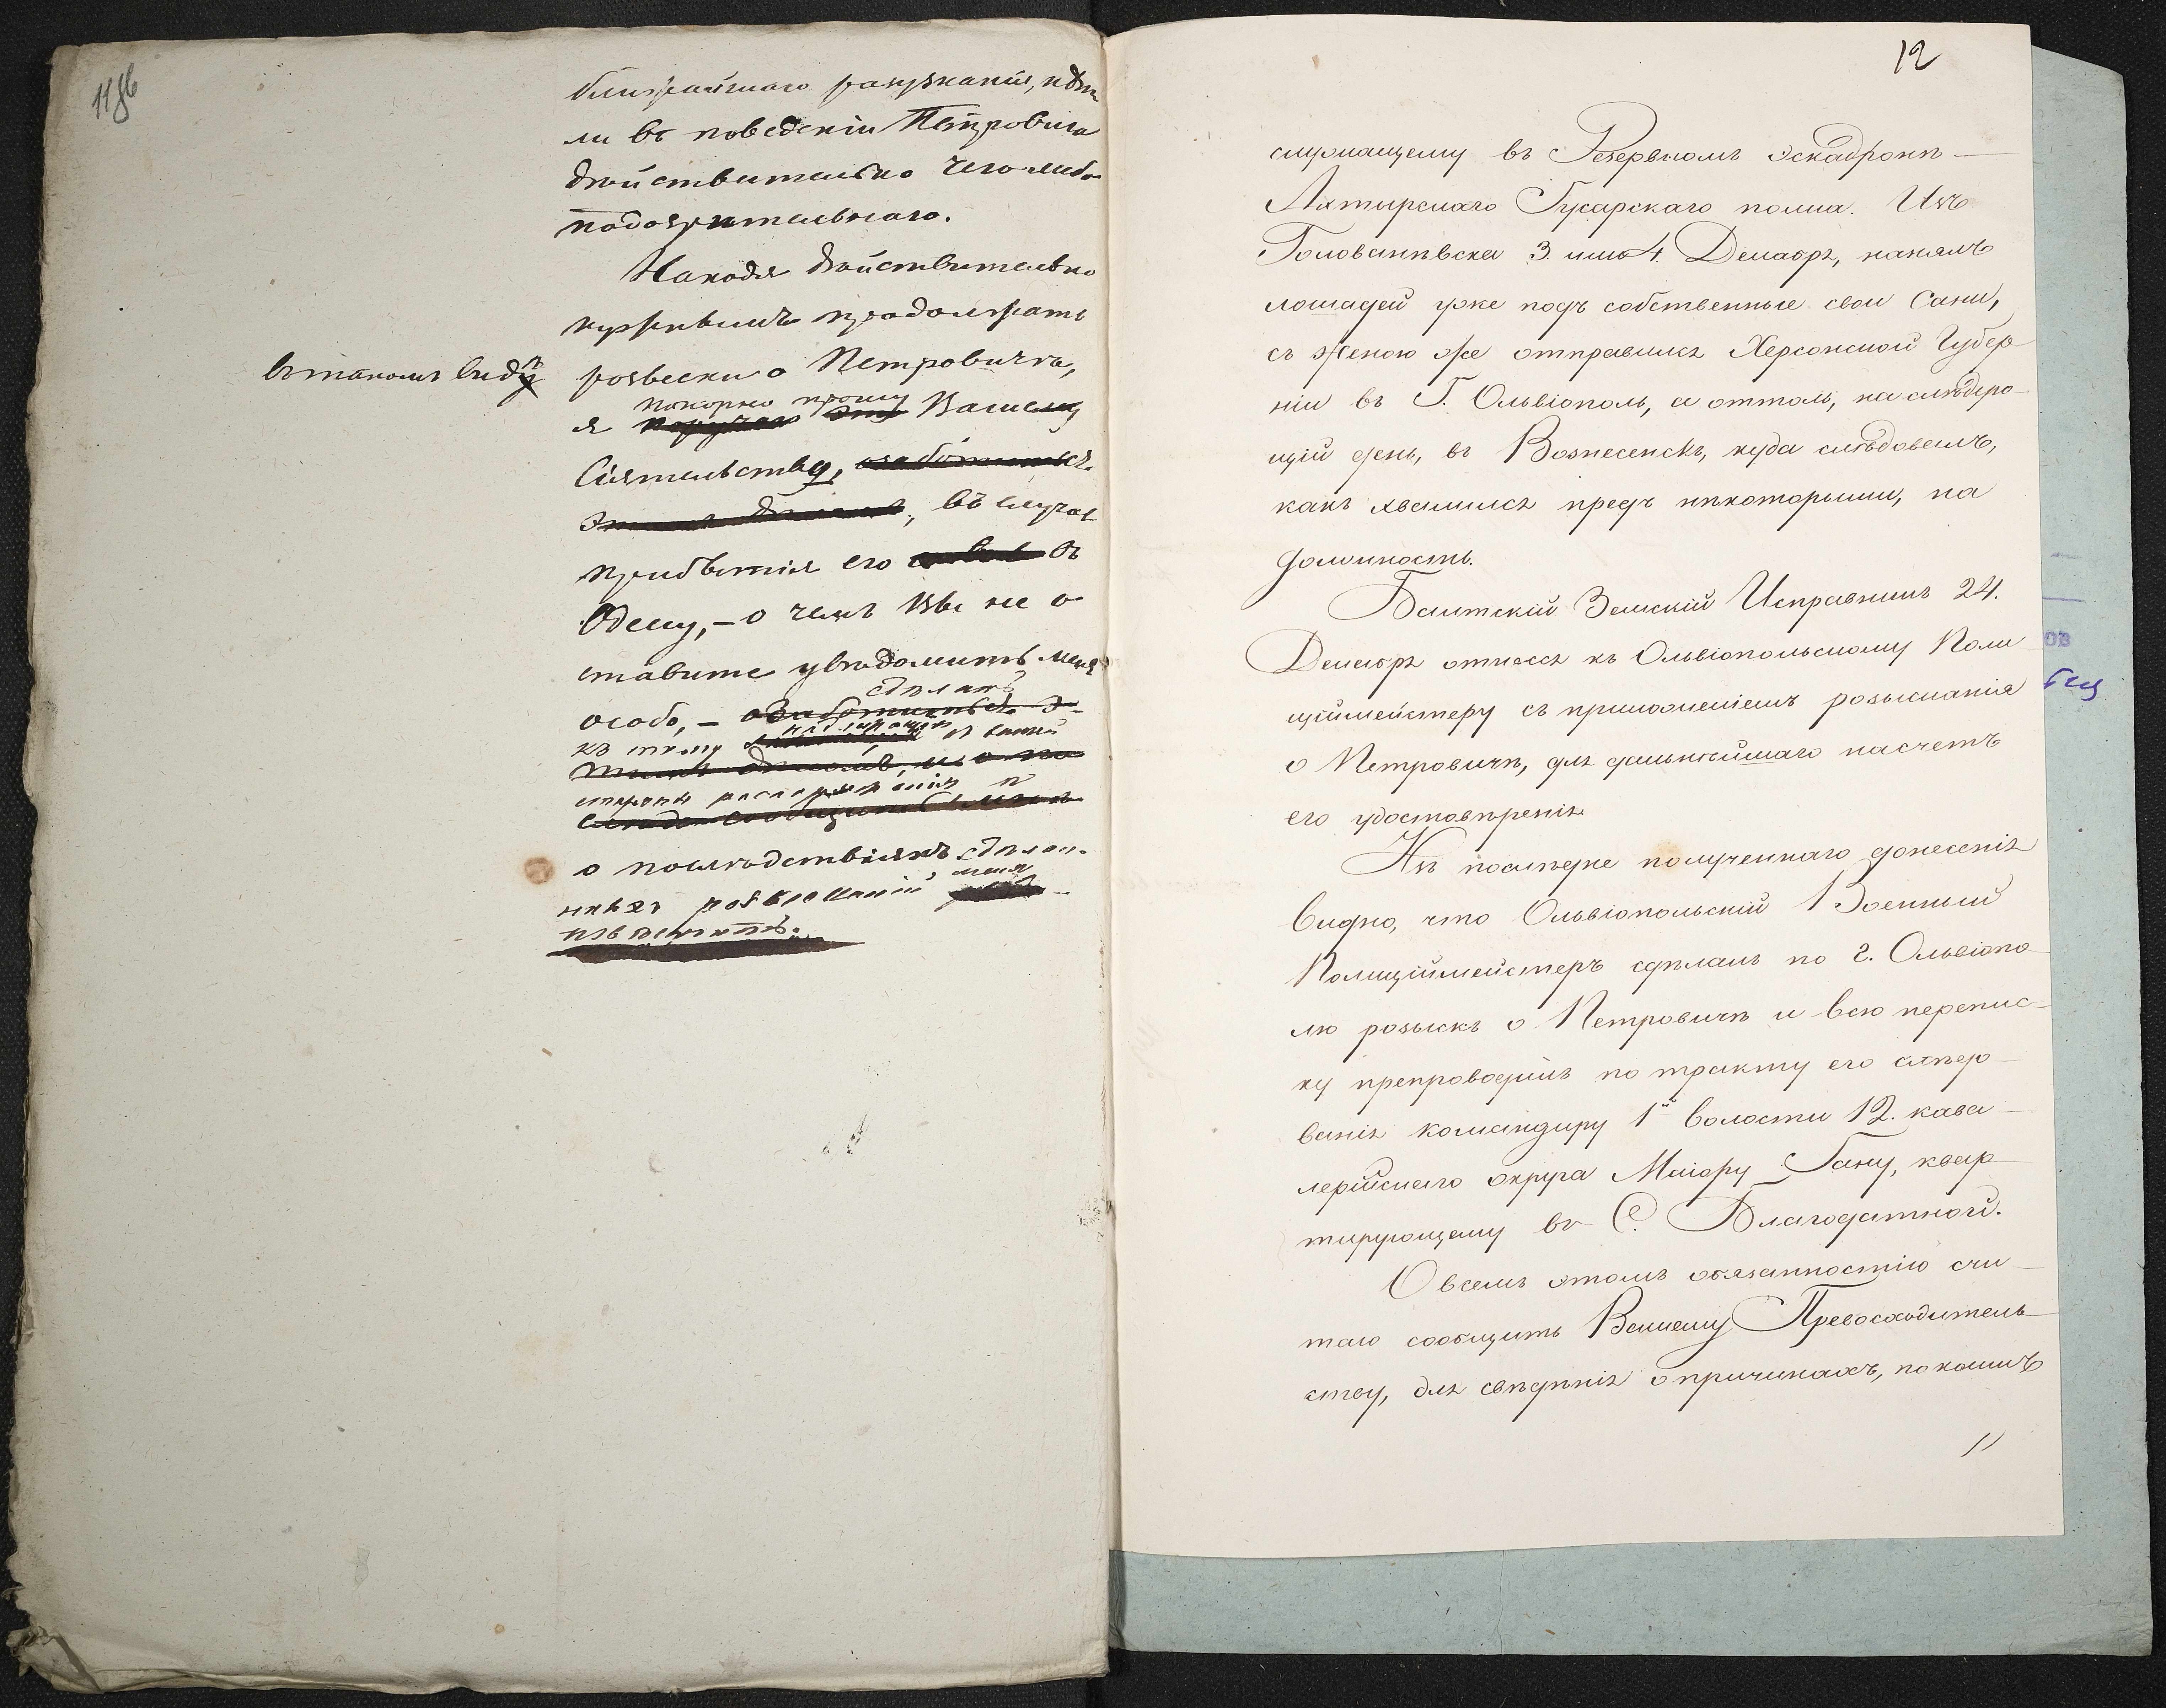 118б
ближайшаго разузнанія, нѣтъ
ли въ поведеніи Петровича
дѣйствительно чего либо
подозрительнаго.
Находя дѣйствительно
нужнымъ продолжать
въ такомъ видѣ
розыски о Петровичѣ,
покорно прошу
я поручаю Ваше
Сіятельство,
въ случаѣ
прибытія его въ
Одессу, – о чемъ Вы не о
ставите увѣдомить меня
сдѣлать
особо, –
къ тому надлежащія съ вашей
стороны распоряженія и
о послѣдствіяхъ сдѣлан-
ныхъ розысканій меня
извѣстить.
12
служащему въ Резервномъ эскадронѣ
Ахтырскаго Гусарскаго полка. Изъ
Голованѣвска 3. или 4. Декабря, нанялъ
лошадей уже подъ собственные свои сани,
съ женою же отправился Херсонской Губер
ніи въ Г. Ольвіополь, а оттоль, на слѣдую
щій день, въ Вознесенскъ, куда слѣдовалъ,
какъ хвалился предъ нѣкоторыми, на
должность.
Балтскій Земскій Исправникъ 24.
Декабря отнесся къ Ольвіопольскому Поли
ціймейстеру съ приложеніемъ розысканія
о Петровичѣ, для дальнѣйшаго насчетъ
его удостовѣренія.
Изъ послѣдне полученнаго донесенія
видно, что Ольвіопольскій Военный
Полиціймейстеръ сдѣлалъ по г. Ольвіопо
лю розыскъ о Петровичѣ и всю перепис
ку препроводилъ по тракту его слѣдо
ванія командиру 1й волости 12. кава
лерійскаго округа Маіору Гану, квар
тирующему въ С. Благодатной.
О всемъ этомъ обязанностію счи
таю сообщить Вашему Превосходитель
ству, для свѣдѣнія о причинахъ, по коимъ